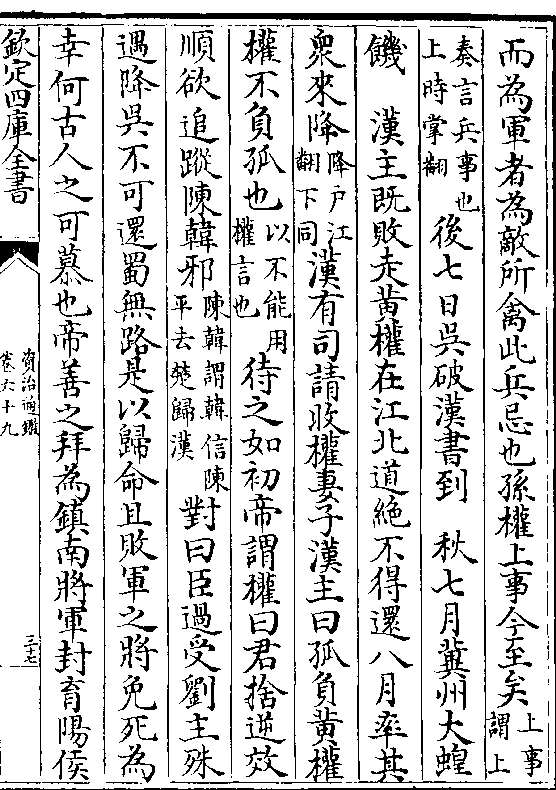 而為軍者為敵所禽此兵忌也孫權上事今至矣上事謂上
奏言兵事也上時掌翻後七日吳破漢書到　秋七月冀州大蝗
饑　漢主既敗走黃權在江北道絶不得還八月率其
衆來降降户江翻下同漢有司請收權妻子漢主曰孤負黃權
權不負孤也以不能用權言也待之如初帝謂權曰君捨逆效
順欲追蹤陳韓邪陳韓謂韓信陳平去楚歸漢對曰臣過受劉主殊
遇降吳不可還蜀無路是以歸命且敗軍之將免死為
幸何古人之可慕也帝善之拜為鎮南將軍封育陽侯
欽定四庫全書
資治通鑑
卷六十九
三十七